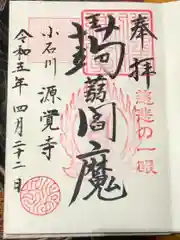 奉拝
慈悲の一眼
蒟蒻閻魔
小石川 源覚寺
令和五年四月二十二日